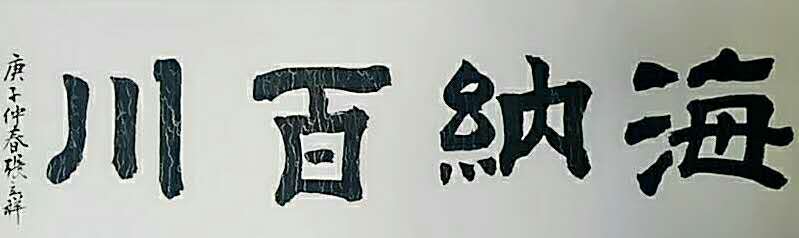 海納百川
庚子仲春張立祥